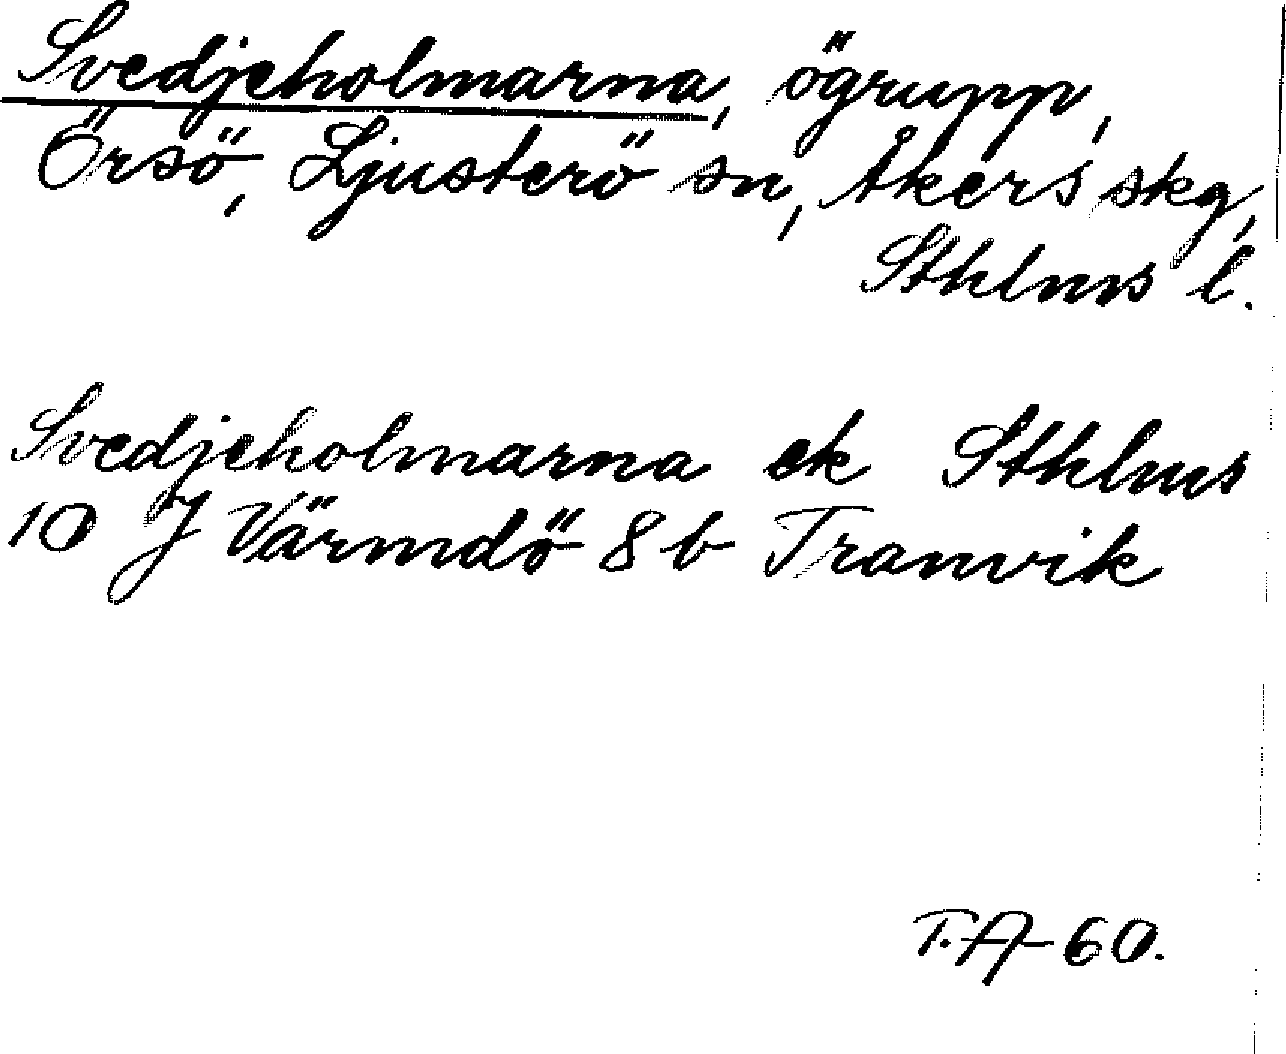 Svedjeholmarna, ögrupp,
Örsö, Ljusterö sn, Åkers skg,
Sthlms l.
Svedjeholmarna ek Sthlms
10 J Värmdö 8 b Tranvik
T.A-60.